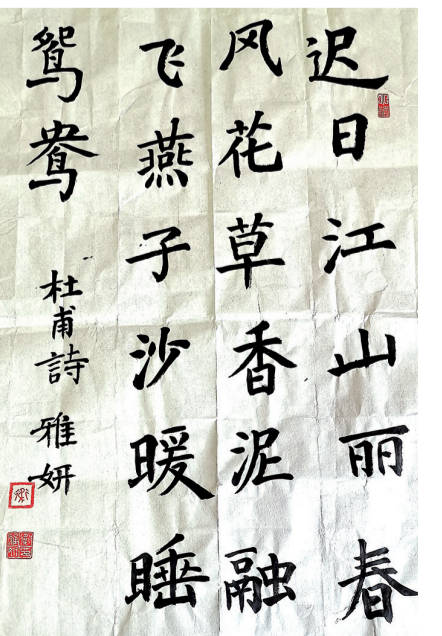 迟日江山丽春
风花草香泥融
飞燕子沙暖睡
鸳鸯
杜甫詩 雅妍